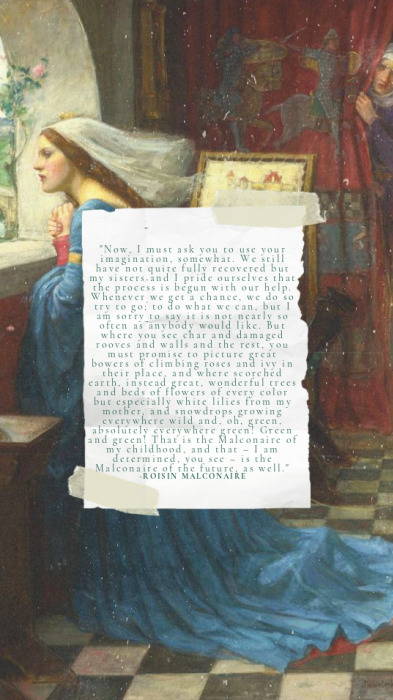 "Now, I must ask you to use your
imagination, somewhat. We still
have not quite fully recovered but
my sisters and I pride ourselves that
the process is begun with our help.
Whenever we get a chance, we do so
try to go; to do what we can, but I
am sorry to say it is not nearly so
often as anybody would like. But
where you see char and damaged
rooves and walls and the rest, you
must promise to picture great
bowers of climbing roses and ivy in
their place, and where scorched
earth, instead great, wonderful trees
and beds of flowers of every color
but especially white lilies from my
mother, and snowdrops growing
everywhere wild and, oh, green,
absolutely everywhere green! Green
and green! That is the Malconaire of
my childhood, and that – I am
determined, you see – is the
Malconaire of the future, as well."
-ROISIN MALCONAIRE